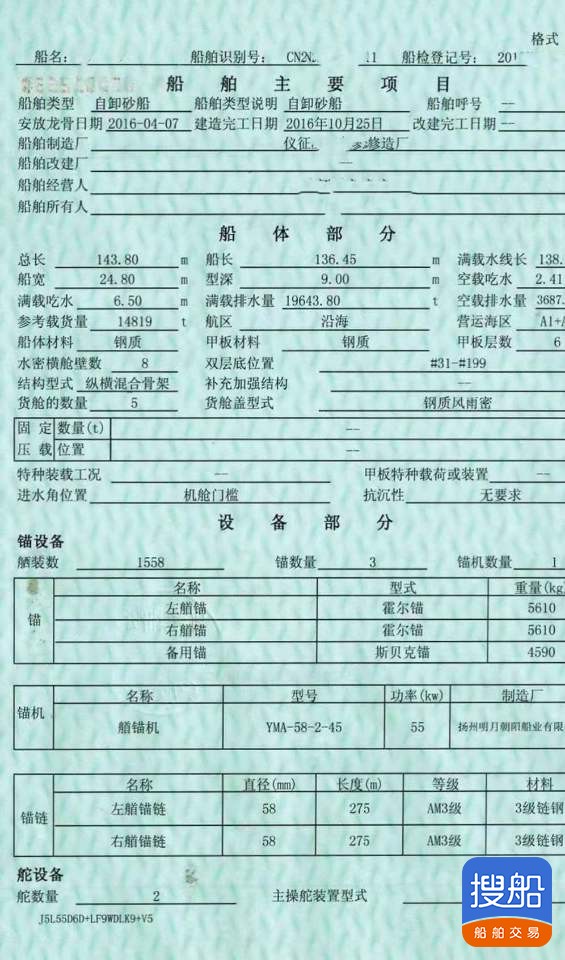 格式
船名： 船舶识别号： CN2N 11 船检登记号： 201
船 舶 主 要 项 目
船舶类型 自卸砂船 船舶类型说明 自卸砂船 船舶呼号 --
安放龙骨日期 2016-04-07 建造完工日期 2016年10月25日 改建完工日期 --
船舶制造厂 仪征 修造厂
船舶改建厂 --
船舶经营人
船舶所有人
船 体 部 分
总长 143.80 m 船长 136.45 m 满载水线长 138.
船宽 24.80 m 型深 9.00 m 空载吃水 2.41
满载吃水 6.50 m 满载排水量 19643.80 t 空载排水量 3687.
参考载货量 14819 t 航区 沿海 营运海区 A1+A
船体材料 钢质 甲板材料 钢质 甲板层数 6
水密横舱壁数 8 双层底位置 #31-#199
结构型式 纵横混合骨架 补充加强结构 --
货舱的数量 5 货舱盖型式 钢质风雨密
固 定 数量(t) --
压 载 位置 --
特种装载工况 -- 甲板特种载荷或装置 --
进水角位置 机舱门槛 抗沉性 无要求
设 备 部 分
锚设备
舾装数 1558 锚数量 3 锚机数量 1
名称 型式 重量(kg
锚 左艏锚 霍尔锚 5610
右艏锚 霍尔锚 5610
备用锚 斯贝克锚 4590
名称 型号 功率(kw) 制造厂
锚机 艏锚机 YMA-58-2-45 55 扬州明月朝阳船业有限
名称 直径(mm) 长度(m) 等级 材料
锚链 左艏锚链 58 275 AM3级 3级链钢
右艏锚链 58 275 AM3级 3级链钢
舵设备
舵数量 2 主操舵装置型式
J5L55D6D+LF9WDLK9+V5
搜船
船舶交易